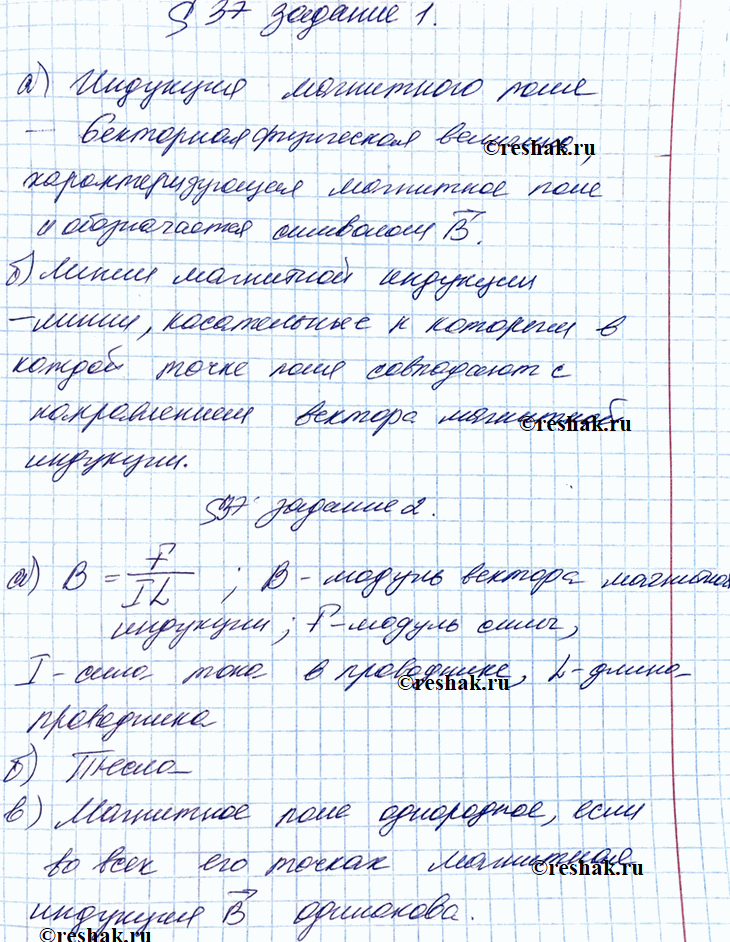 § 37 задание 1.
а) Индукция магнитного поля
– векторная физическая величина,
©reshak.ru
характеризующая магнитное поле
и обозначается символом B⃗.
б) Линии магнитной индукции
– линии, касательные к которым в
каждой точке поля совпадают с
направлением вектора магнитной
©reshak.ru
индукции.
§37 задание 2.
а) B = F/IL ; B – модуль вектора магнитной
индукции; F – модуль силы,
I – сила тока в проводнике, L – длина
©reshak.ru
проводника
б) Тесла
в) Магнитное поле однородное, если
во всех его точках магнитная
©reshak.ru
индукция B⃗ одинакова.
©reshak.ru